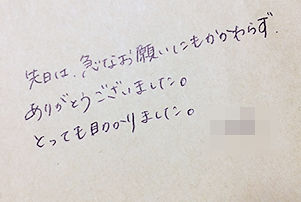 先日は、急なお願いにもかかわらず、
ありがとうございました。
とっても助かりました。